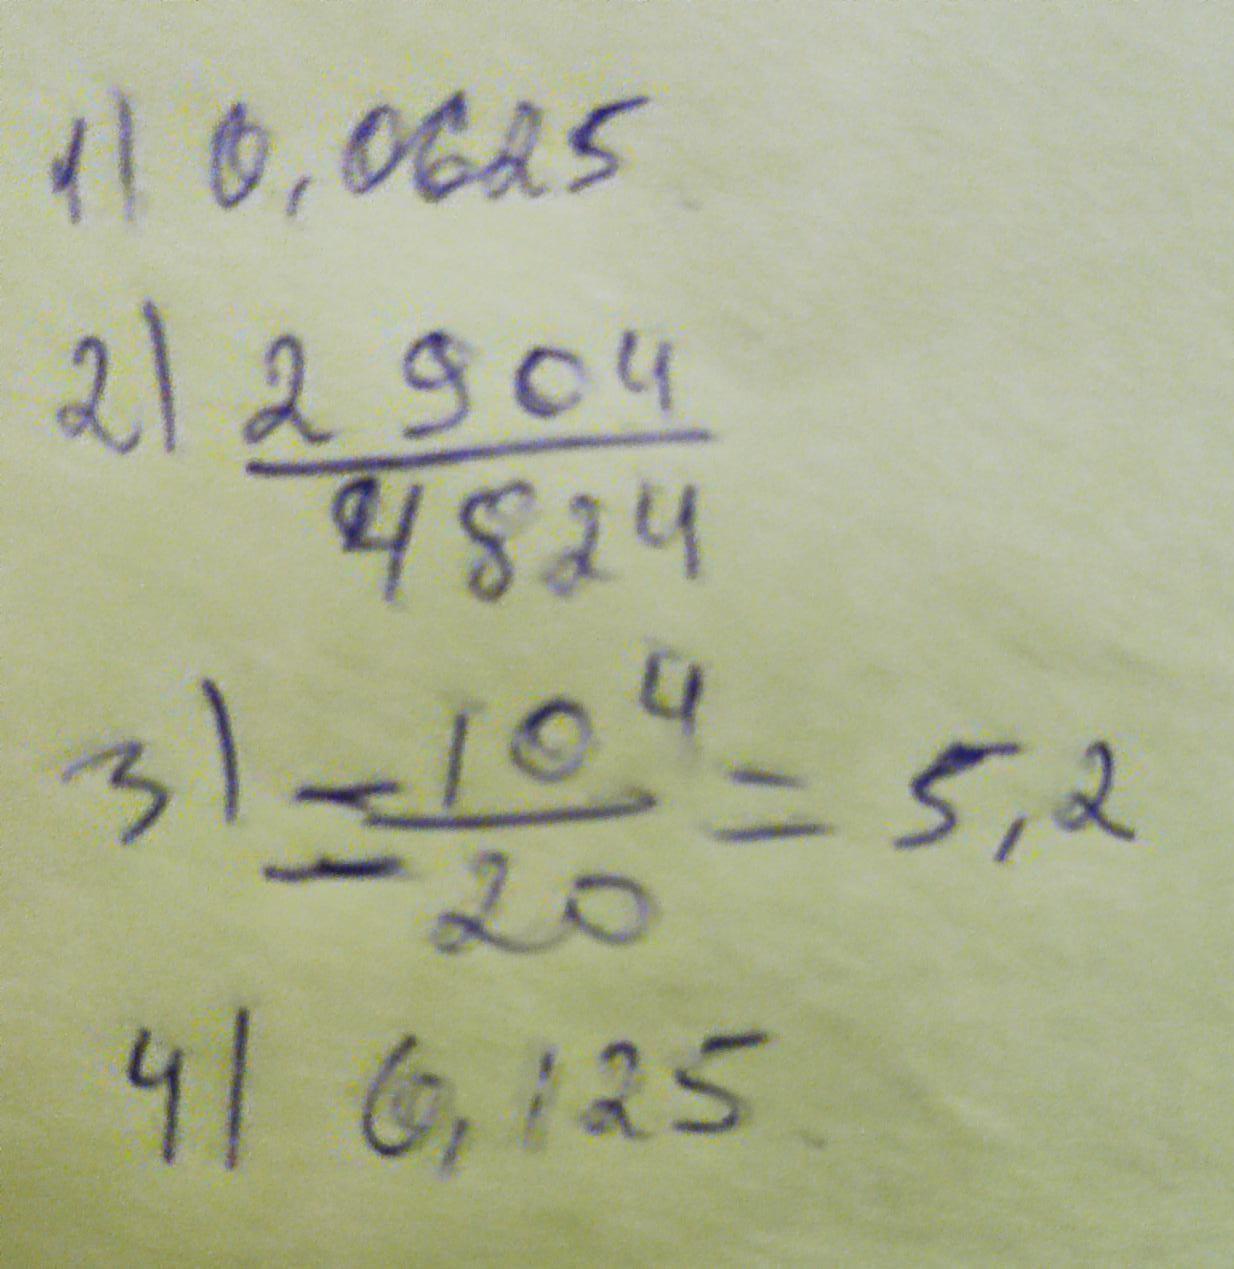 1) 0,0625
2) 2904
4824
3) -104 = 5,2
-20
4) 6,125